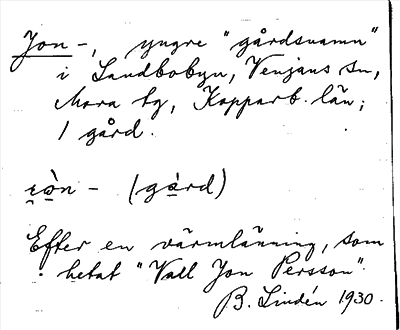 Jon -, yngre "gårdsnamn"
i Landbobyn, Venjans sn,
Mora tg, Kopparb. län;
1 gård.
- (gård)
Efter en värmlänning, som
hetat "Vall Jon Persson".
B. Lindén 1930.